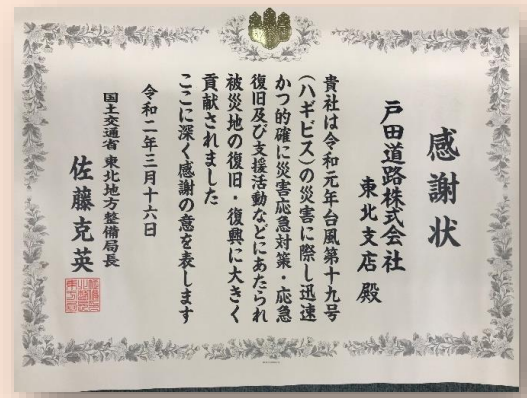 感謝状
戸田道路株式会社
東北支店 殿
貴社は令和元年台風第十九号
(ハギビス)の災害に際し迅速
かつ的確に災害応急対策・応急
復旧及び支援活動などにあたられ
被災地の復旧・復興に大きく
貢献されました
ここに深く感謝の意を表します
令和二年三月十六日
国土交通省 東北地方整備局長
佐藤克英